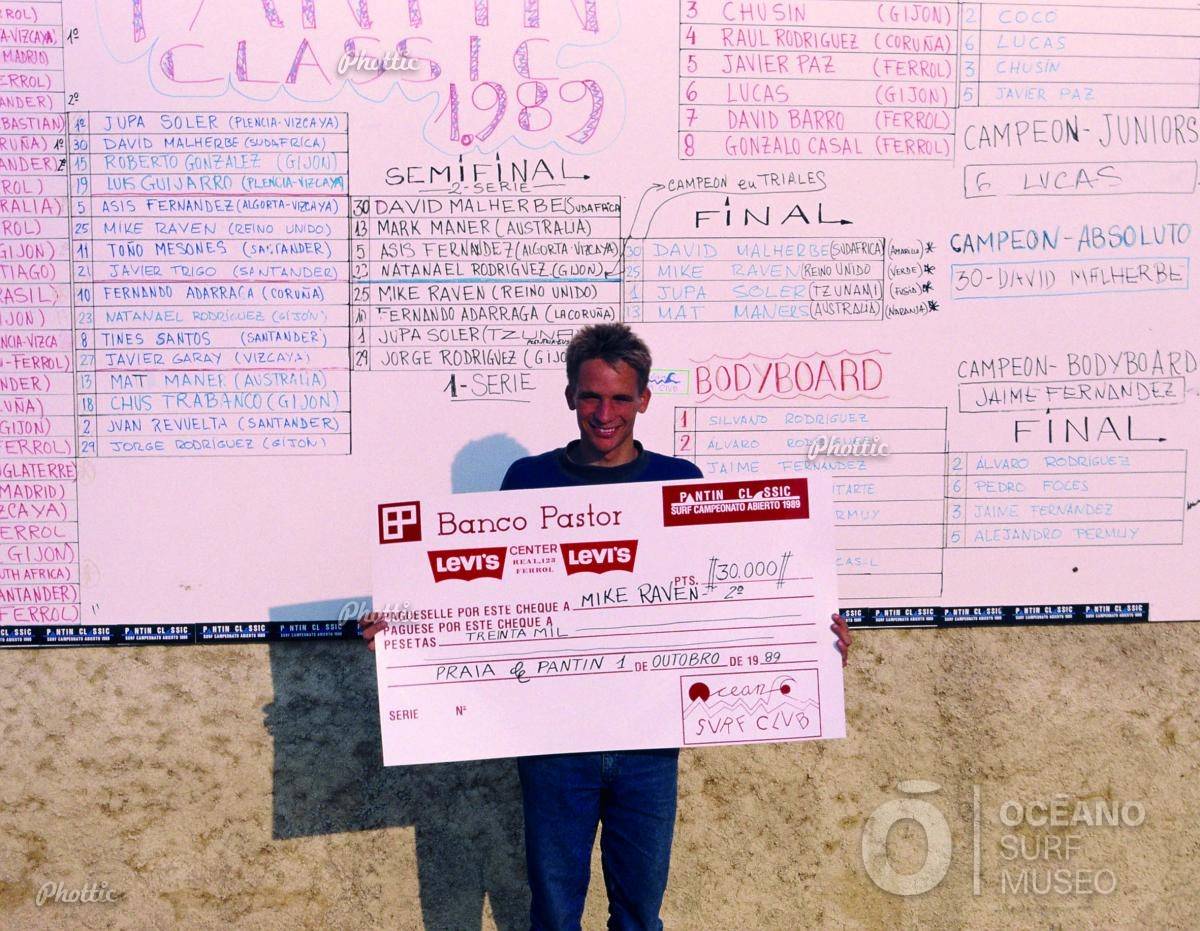 PANTIN
CLASSIC
1.989
ROL)
TA-VIZCAYA)
MADRID)
ERROL)
ANDER)
EBASTIAN)
RUÑA)
ANDER)
ROL)
RALIA)
ROL)
GIJON)
TIAGO)
RASIL)
IJON)
NCIA-VIZCA
N-FERROL)
NDER)
UÑA)
GIJON)
FERROL)
NGLATERRE)
MADRID)
ZCAYA)
ERROL
GIJON)
OUTH AFRICA)
ANTANDER)
FERROL)
1º
2º
1º JUPA SOLER (PLENCIA-VIZCAYA)
30 DAVID MALHERBE (SUDAFRICA)
15 ROBERTO GONZALEZ (GIJON)
19 LUIS GUIJARRO (PLENCIA-VIZCAYA)
5 ASIS FERNANDEZ (ALGORTA-VIZCAYA)
25 MIKE RAVEN (REINO UNIDO)
11 TOÑO MESONES (SANTANDER)
21 JAVIER TRIGO (SANTANDER)
10 FERNANDO ADARRAGA (CORUÑA)
23 NATANAEL RODRIGUEZ (GIJÓN)
8 TINES SANTOS (SANTANDER)
27 JAVIER GARAY (VIZCAYA)
13 MAT MANER (AUSTRALIA)
18 CHUS TRABANCO (GIJON)
2 JVAN REVUELTA (SANTANDER)
29 JORGE RODRIGUEZ (GIJON)
SEMIFINAL
2-SERIE
30 DAVID MALHERBE (SUDAFRICA
13 MARK MANER (AUSTRALIA)
5 ASIS FERNANDEZ (ALGORTA-VIZCAYA)
23 NATANAEL RODRIGUEZ (GIJON)
25 MIKE RAVEN (REINO UNIDO)
10 FERNANDO ADARRAGA (LACORUÑA)
1 JUPA SOLER (TZUNA
29 JORGE RODRIGUEZ (GIJO
1-SERIE
CAMPEON en TRIALES
FINAL
30 DAVID MALHERBE (SUDAFRICA) (AMARILLO)*
25 MIKE RAVEN (REINO UNIDO (VERDE)*
1 JUPA SOLER (TZUNAMI) (FUSIA)*
13 MAT MANERS (AUSTRALIA) (NARANJA)*
3 CHUSIN (GIJON)
4 RAUL RODRIGUEZ (CORUÑA)
5 JAVIER PAZ (FERROL)
6 LUCAS (GIJON)
7 DAVID BARRO (FERROL)
8 GONZALO CASAL (FERROL)
2 COCO
6 LUCAS
3 CHUSIN
5 JAVIER PAZ
CAMPEON-JUNIORS
6 LVCAS
CAMPEON-ABSOLUTO
30-DAVID MALHERBE
CAMPEON-BODYBOARD
JAIME FERNANDEZ
BODYBOARD
1 SILVANO RODRIGUEZ
2 ÁLVARO RODRIGUEZ
JAIME FERNANDEZ
TARTE
RMUY
CASIL
FINAL
2 ÁLVARO RODRIGUEZ
6 PEDRO FOCES
3 JAIME FERNANDEZ
5 ALEJANDRO PERMUY
Banco Pastor
PANTIN CLASSIC
SURF CAMPEONATO ABIERTO 1989
LEVI'S CENTER LEVI'S
REAL,123
FERROL
PTS. #30.000#
PAGUESELLE POR ESTE CHEQUE A MIKE RAVEN - 2º
PAGUESE POR ESTE CHEQUE A
PESETAS TREINTA MIL
PRAIA de PANTIN 1 DE OUTOBRO DE 1989
SERIE Nº
Ocean
SURF CLUB
PANTIN CLASSIC
SURF CAMPEONATO ABIERTO 1989
Phottic
Phottic
Phottic
Phottic
OCÉANO
SURF
MUSEO